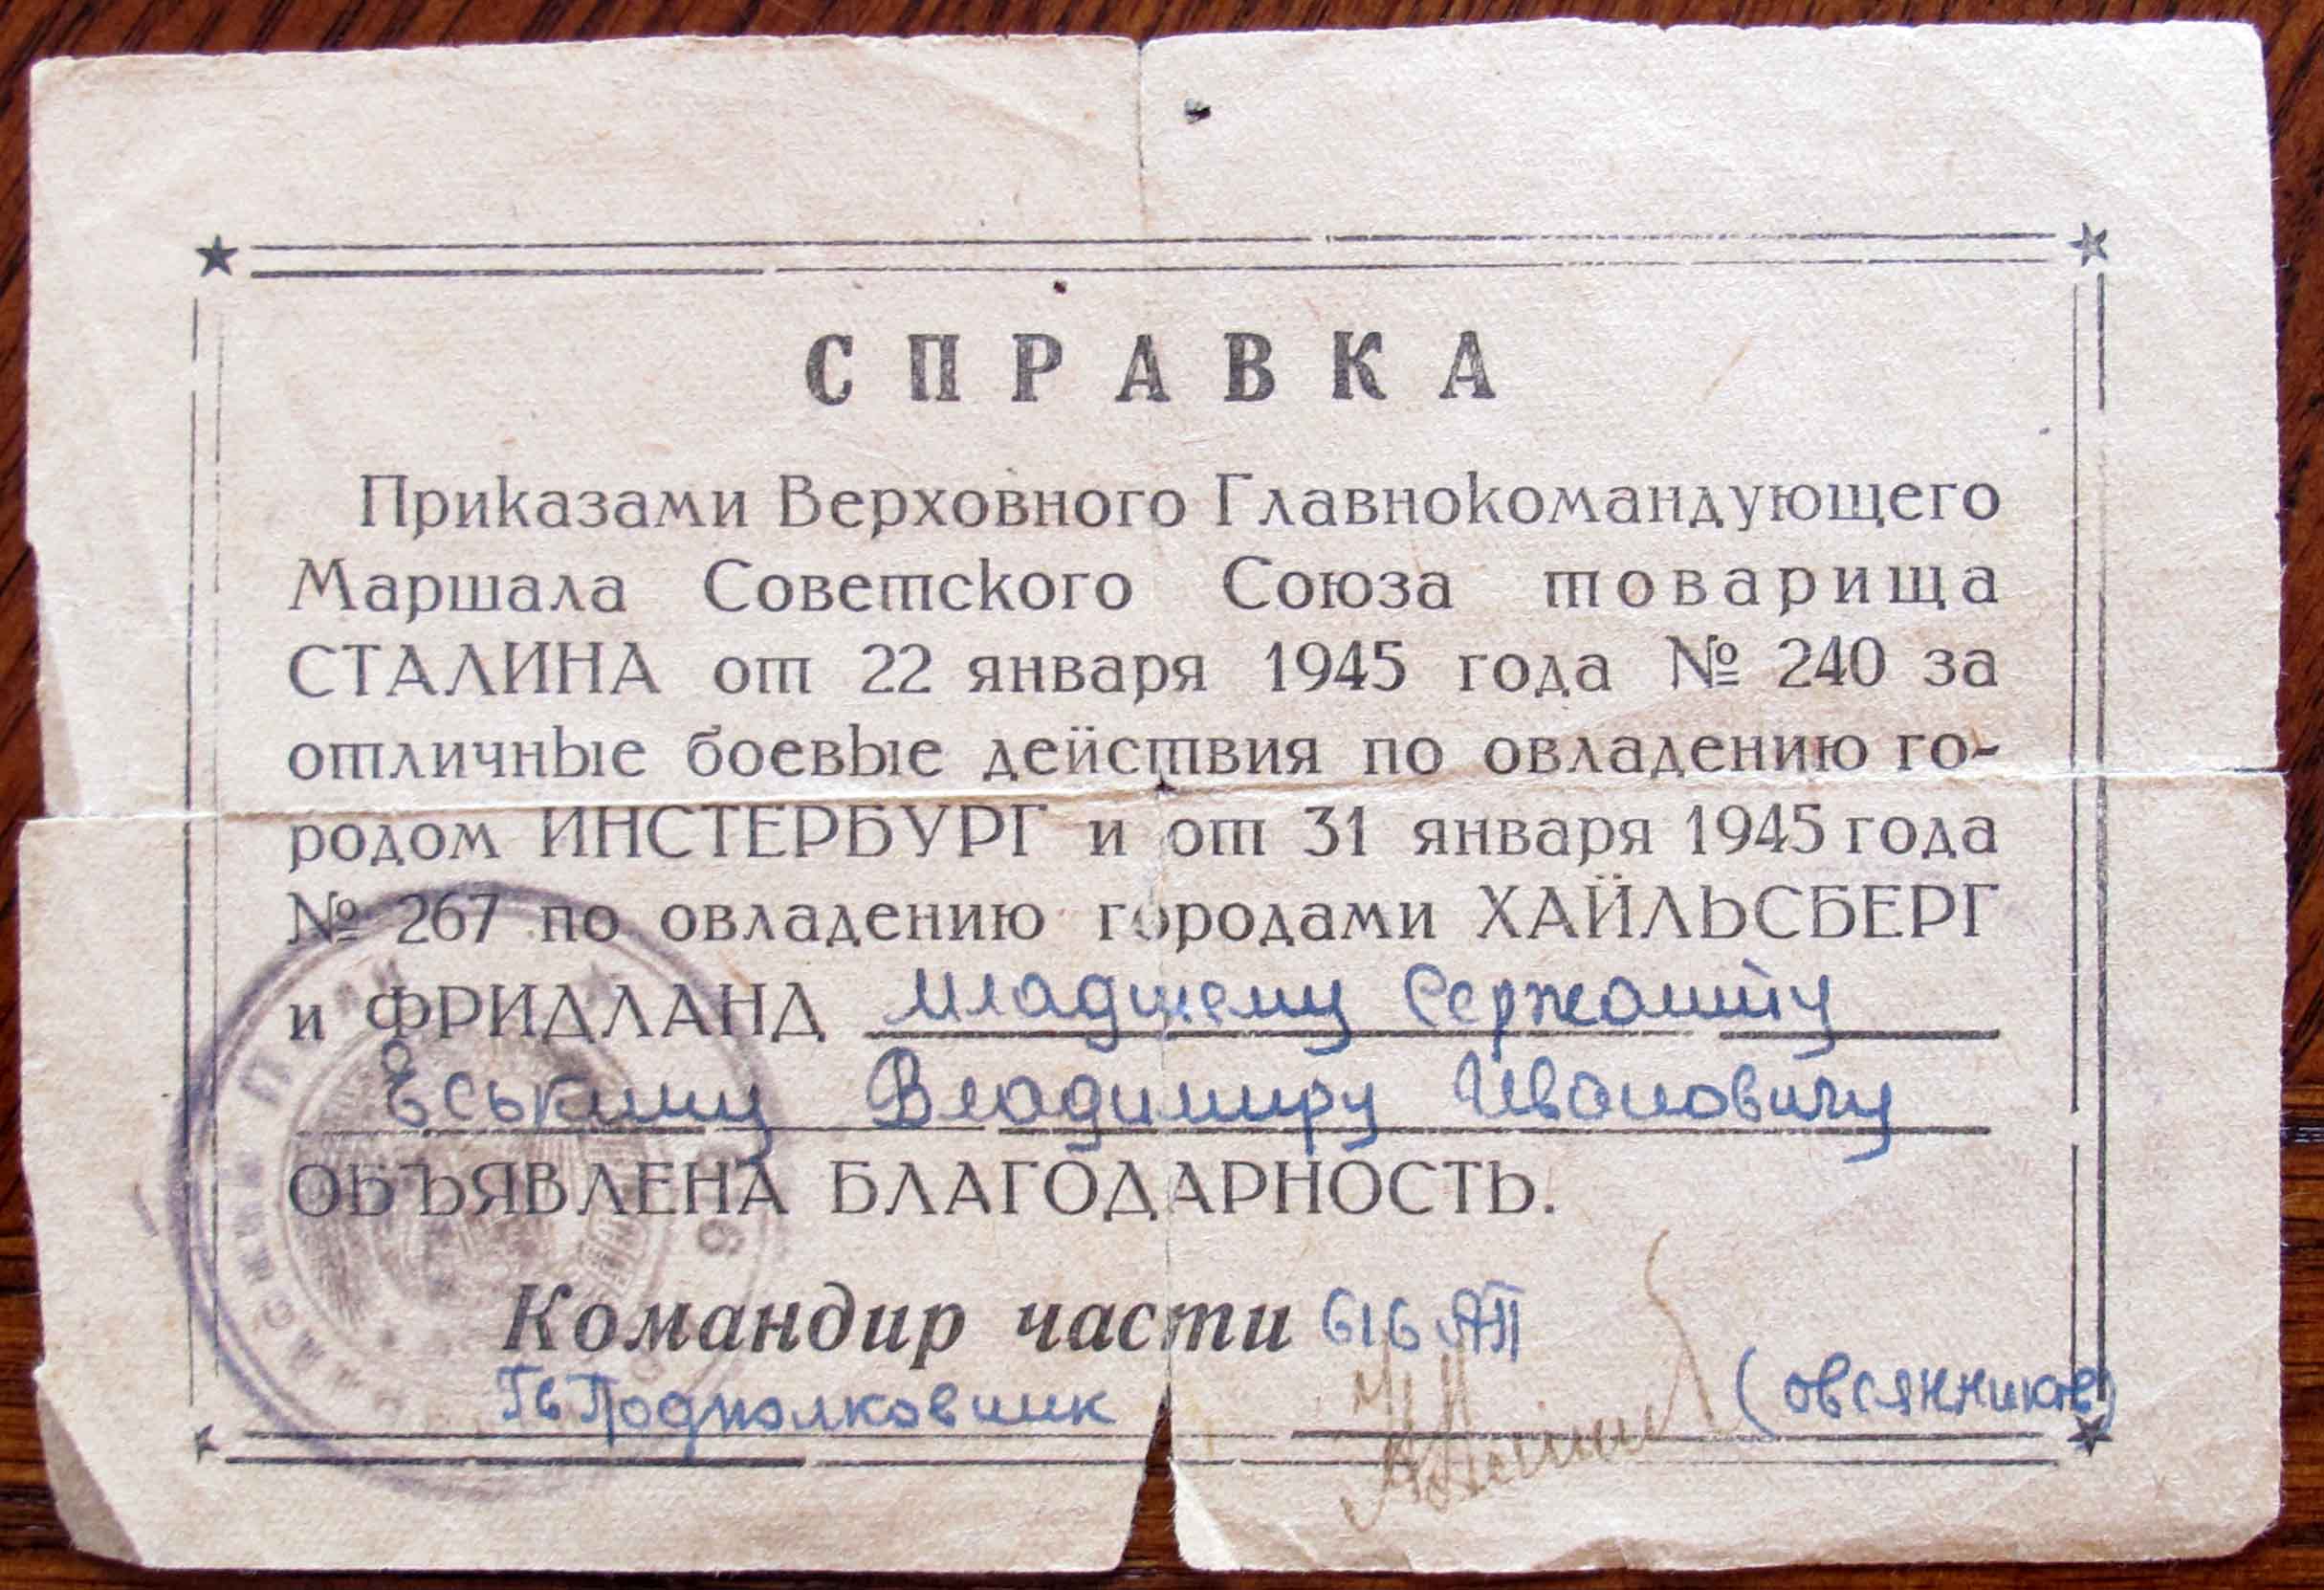 СПРАВКА
Приказами Верховного Главнокомандующего
Маршала Советского Союза товарища
СТАЛИНА от 22 января 1945 года № 240 за
отличные боевые действия по овладению го-
родом ИНСТЕРБУРГ и от 31 января 1945 года
№ 267 по овладению городами ХАЙЛЬСБЕРГ
и ФРИДЛАНД младшему сержанту
Еськину Владимиру Ивановичу
ОБЪЯВЛЕНА БЛАГОДАРНОСТЬ.
Командир части 616 АП
Гв Подполковник (Овсянников)